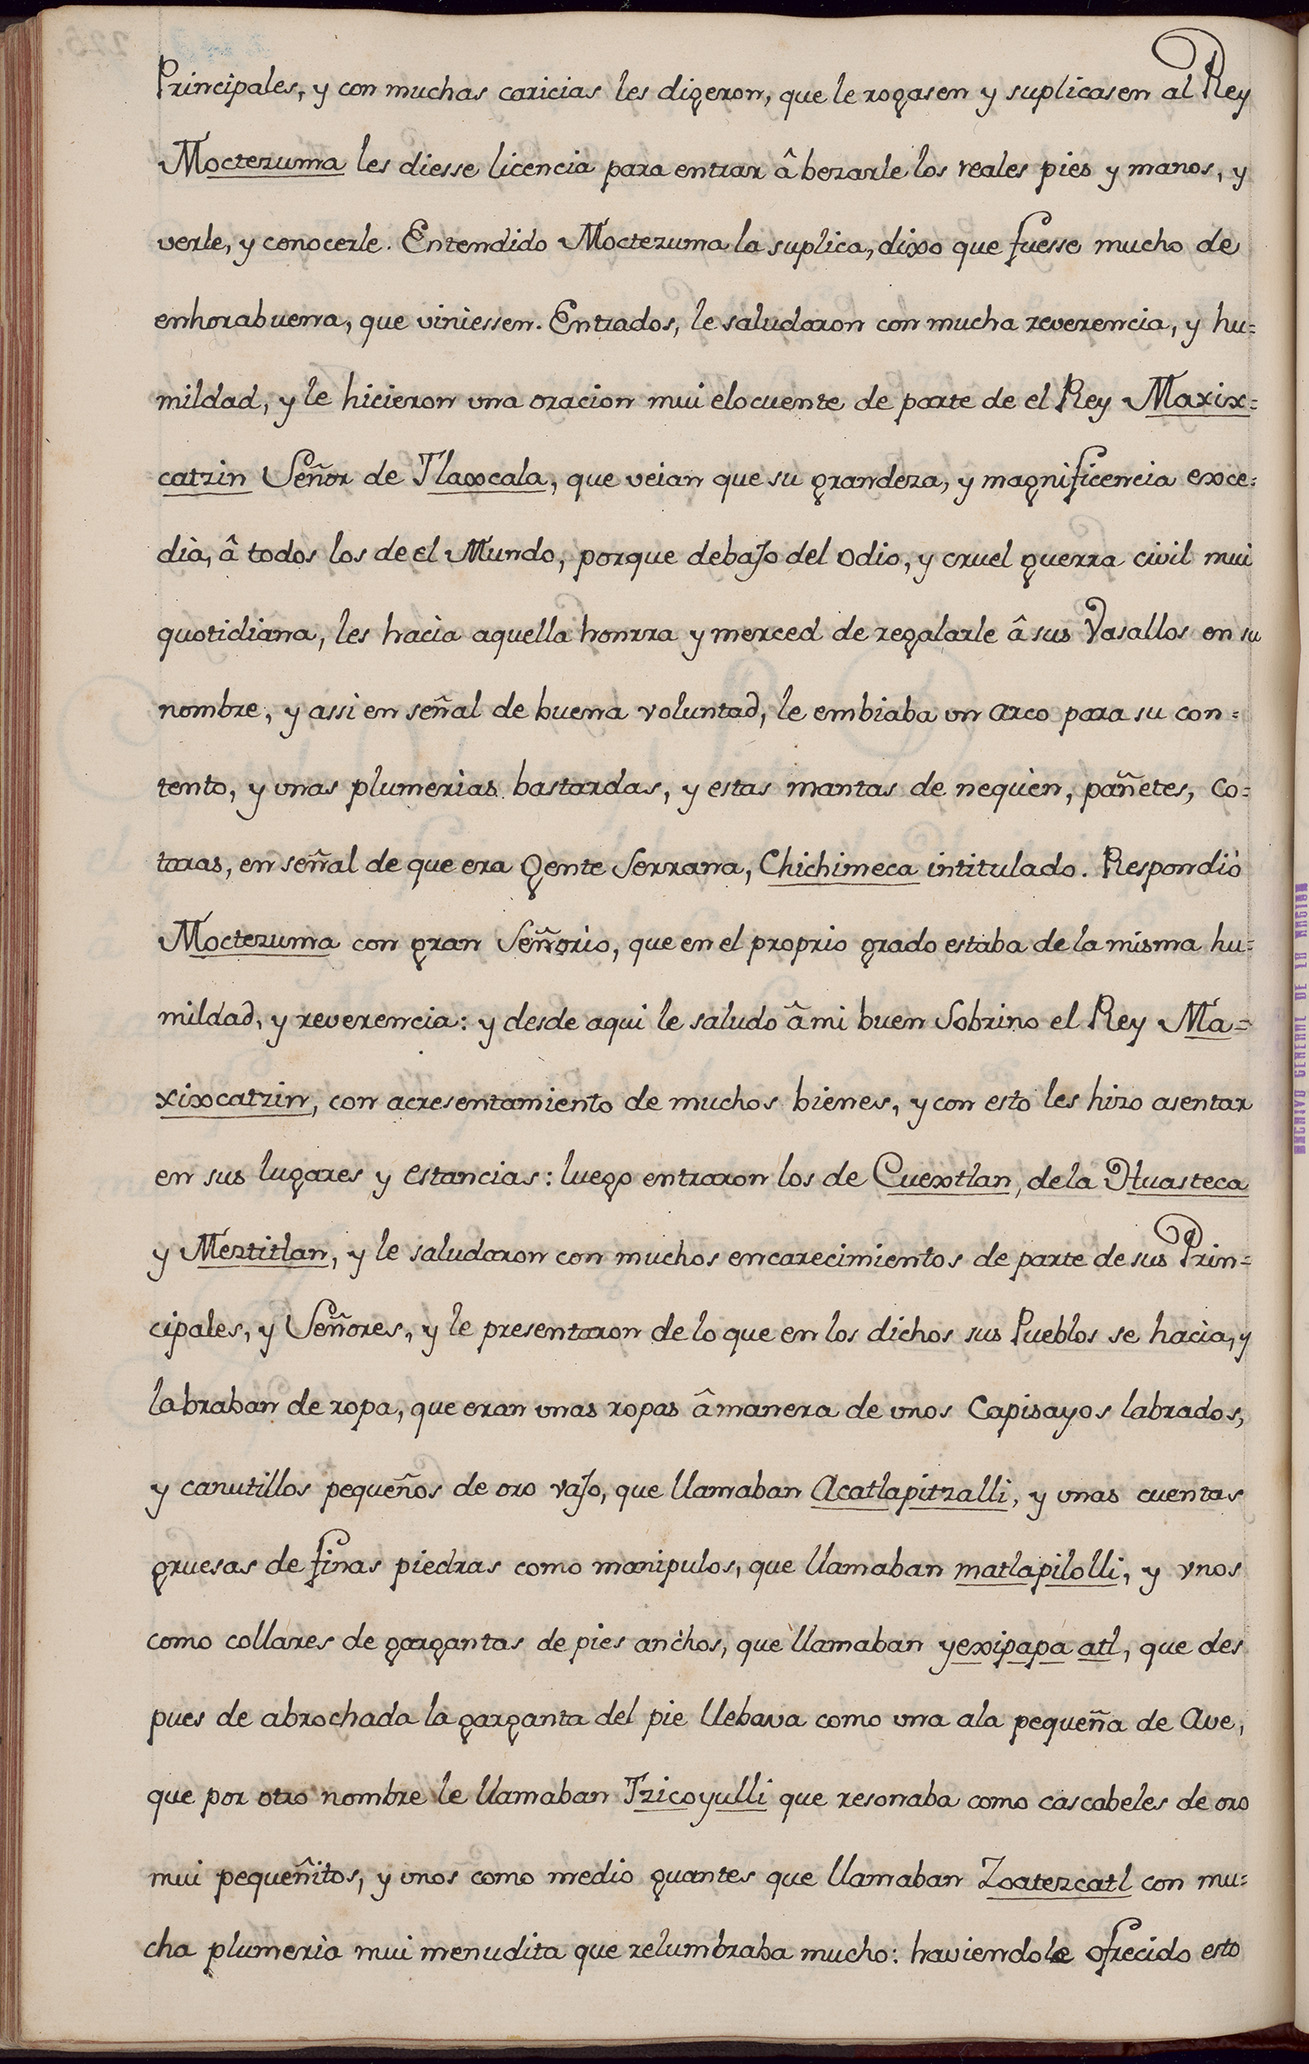 Principales, y con muchas caricias les digeron, que le rogasen y suplicasen al Rey
Moctezuma les diesse licencia para entrar â bezarle los reales pies y manos, y
verle, y conocerle. Entendido Moctezuma la suplica, dixo que fuesse mucho de
enhorabuena, que viniessen. Entrados, le saludaron con mucha reverencia, y hu=
mildad, y le hicieron una oracion mui elocuente de parte de el Rey Maxix=
catzin Señor de Tlaxcala, que veian que su grandeza, y magnificencia exce=
dià, â todos los de el Mundo, porque debaJo del odio, y cruel guerra civil mui
quotidiana, les hacìa aquella honrra y merced de regalarle â sus Vasallos en su
nombre, y assi en señal de buena voluntad, le embiaba un arco para su con=
tento, y unas plumerias bastardas, y estas mantas de nequèn, pañetes, co=
taras, en señal de que era gente Serrana, Chichimeca intitulado. Respondiò
Moctezuma con gran Señorìo, que en el proprio grado estaba de la misma hu=
mildad, y reverencia: y desde aqui le saludo â mi buen Sobrino el Rey Ma=
xixcatzin, con acresentamiento de muchos bienes, y con esto les hizo asentar
en sus lugares y estancias: luego entraron los de Cuextlan, de la Huasteca
y Meztitlan, y le saludaron con muchos encarecimientos de parte de sus Prin=
cipales, y Señores, y le presentaron de lo que en los dichos sus Pueblos se hacìa, y
labraban de ropa, que eran unas ropas â manera de unos Capisayos labrados,
y canutillos pequeños de oro vaJo, que llamaban Acatlapitzalli, y unas cuentas
gruesas de finas piedras como manipulos, que llamaban matlapilolli, y vnos
como collares de gargantas de pies anchos, que llamaban yexipapa atl, que des
pues de abrochada la garganta del pie llebava como una ala pequeña de Ave,
que por otro nombre le llamaban Tzicoyulli que resonaba como cascabeles de oro
mui pequeñitos, y unos como medio guantes que llamaban Zoatezcatl con mu=
cha plumerìa mui menudita que relumbraba mucho: haviendole ofrecido esto
ARCHIVO GENERAL DE LA NACION